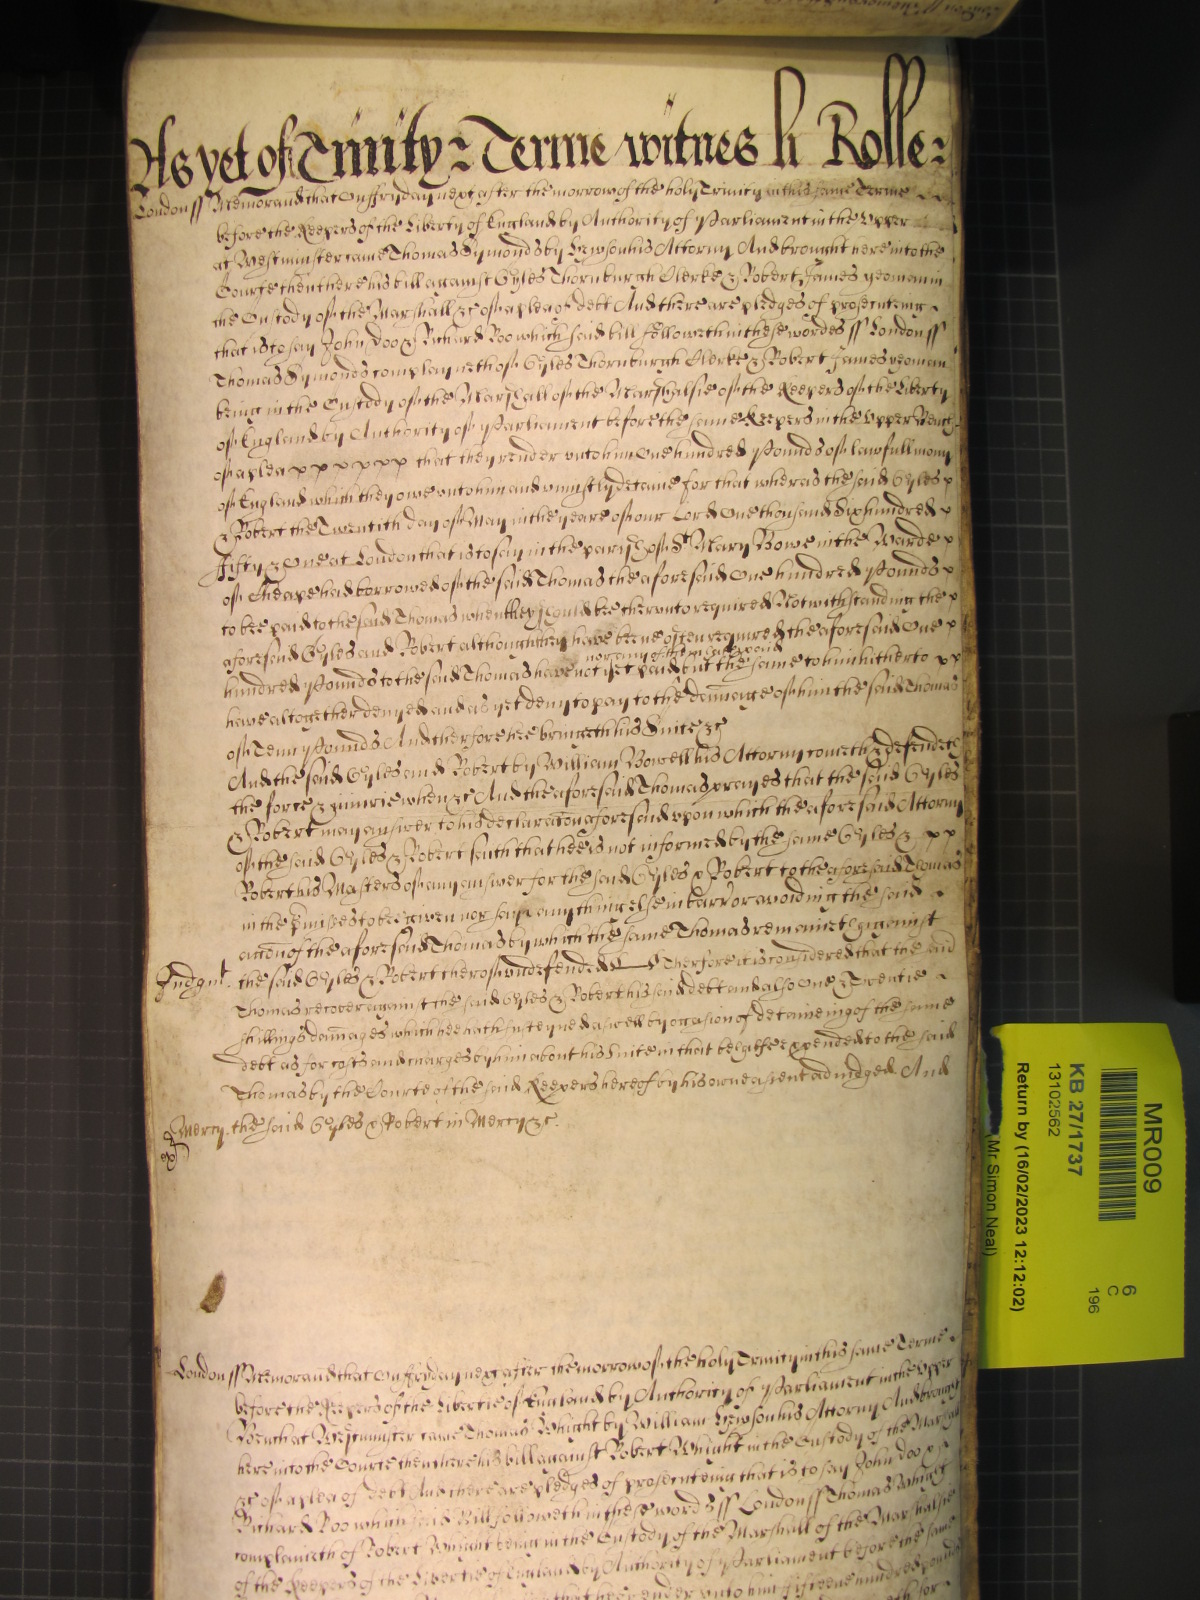 As yet of Trinity Terme witnes li Rolle
London ss Memorand that On ffryday next after the morrow of the holy Trinity in this same Terme
before the Keepers of the Liberty of England by Authority of Parliament in the Upper
at Westminster came Thomas Symonds by Hewson his Attorny And brought here into the
Courte then there his bill against Gyles Thornburgh Clerke & Robert James yeoman in
the Custody of the Marshall &c of a plea of debt And there are pledges of prosecuteing
that is to say John Doo & Richard Roo which said bill followeth in these wordes ss London ss
Thomas Symonds complayneth of Gyles Thornburgh Clerke & Robert James yeoman
being in the Custody of the Marshall of the Marshalsie of the Keepers of the Liberty
of England by Authority of Parliament before the same Keepers in the Upper Bench
of a plea that they render unto him One hundred Pounds of lawfull mony
of England which they owe unto him and uniustly detaine for that wheras the said Gyles
& Robert the Twentith day of May in the yeare of our Lord One thousand Six hundred
fifty & One at London that is to say in the parish of St Mary Bowe in the Warde
of Cheape had borrowed of the said Thomas the aforesaid One hundred Pounds
to bee paid to the said Thomas when they should bee therunto required Notwithstanding the
aforesaid Gyles and Robert although they have beene often required the aforesaid One
hundred Pounds to the said Thomas have not yet paid
nor any of them hath paid
but the same to him hitherto
have altogether denyed and as yet deny to pay to the damage of him the said Thomas
of Tenn Pounds And therfore hee bringeth his Suite &c
And the said Gyles and Robert by William Bowell his Attorny cometh & defendeth
the force & iniurie when &c And the aforesaid Thomas prayes that the said Gyles
& Robert may answer to his declaracon aforesaid upon which the aforesaid Attorny
of the said Gyles & Robert saith that hee is not informed by the same Gyles &
Robert his Masters of any answer for the said Gyles & Robert to the aforesaid Thomas
in the pmises to bee given nor saye any thing else in barr or avoiding the said
accon of the aforesaid Thomas by which the same Thomas remaineth against
Judgmt. the said Gyles & Robert therof undefended Therfore it is considered that the said
Thomas recover against the said Gyles & Robert his said debt and also One & Twentie
shillings damages which hee hath susteyned aswell by occasion of detaineing of the same
debt as for costs and charges by him about his Suite in that behalfe expended to the said
Thomas by the Courte of the said Keepers hereof by his owne assent adiudged And
Mercy. the said Gyles & Robert in Mercy &c.
London ss Memorand that On ffryday next after the morrow of the holy Trinity in this same Terme
before the Keepers of the Libertie of England by Authority of Parliament in the Upper
Bench at Westminster came Thomas Whight by William Hewson his Attorny And brought
here into the Courte then there his bill against Robert Whight in the Custody of the Marshall
&c of a plea of debt And there are pledges of prosecuteing that is to say John Doo
Richard Roo which said Bill followeth in these words ss London ss Thomas Whight
complaineth of Robert Whight being in the Custody of the Marshall of the Marshalsie
of the Keepers of the Libertie of England by Authority of Parliament before the same
that hee render unto him fifteene hundred pounds
MR009
6
C
196
KB 27/1737
13102562
Return by (16/02/2023 12:12:02)
(Mr Simon Neal)